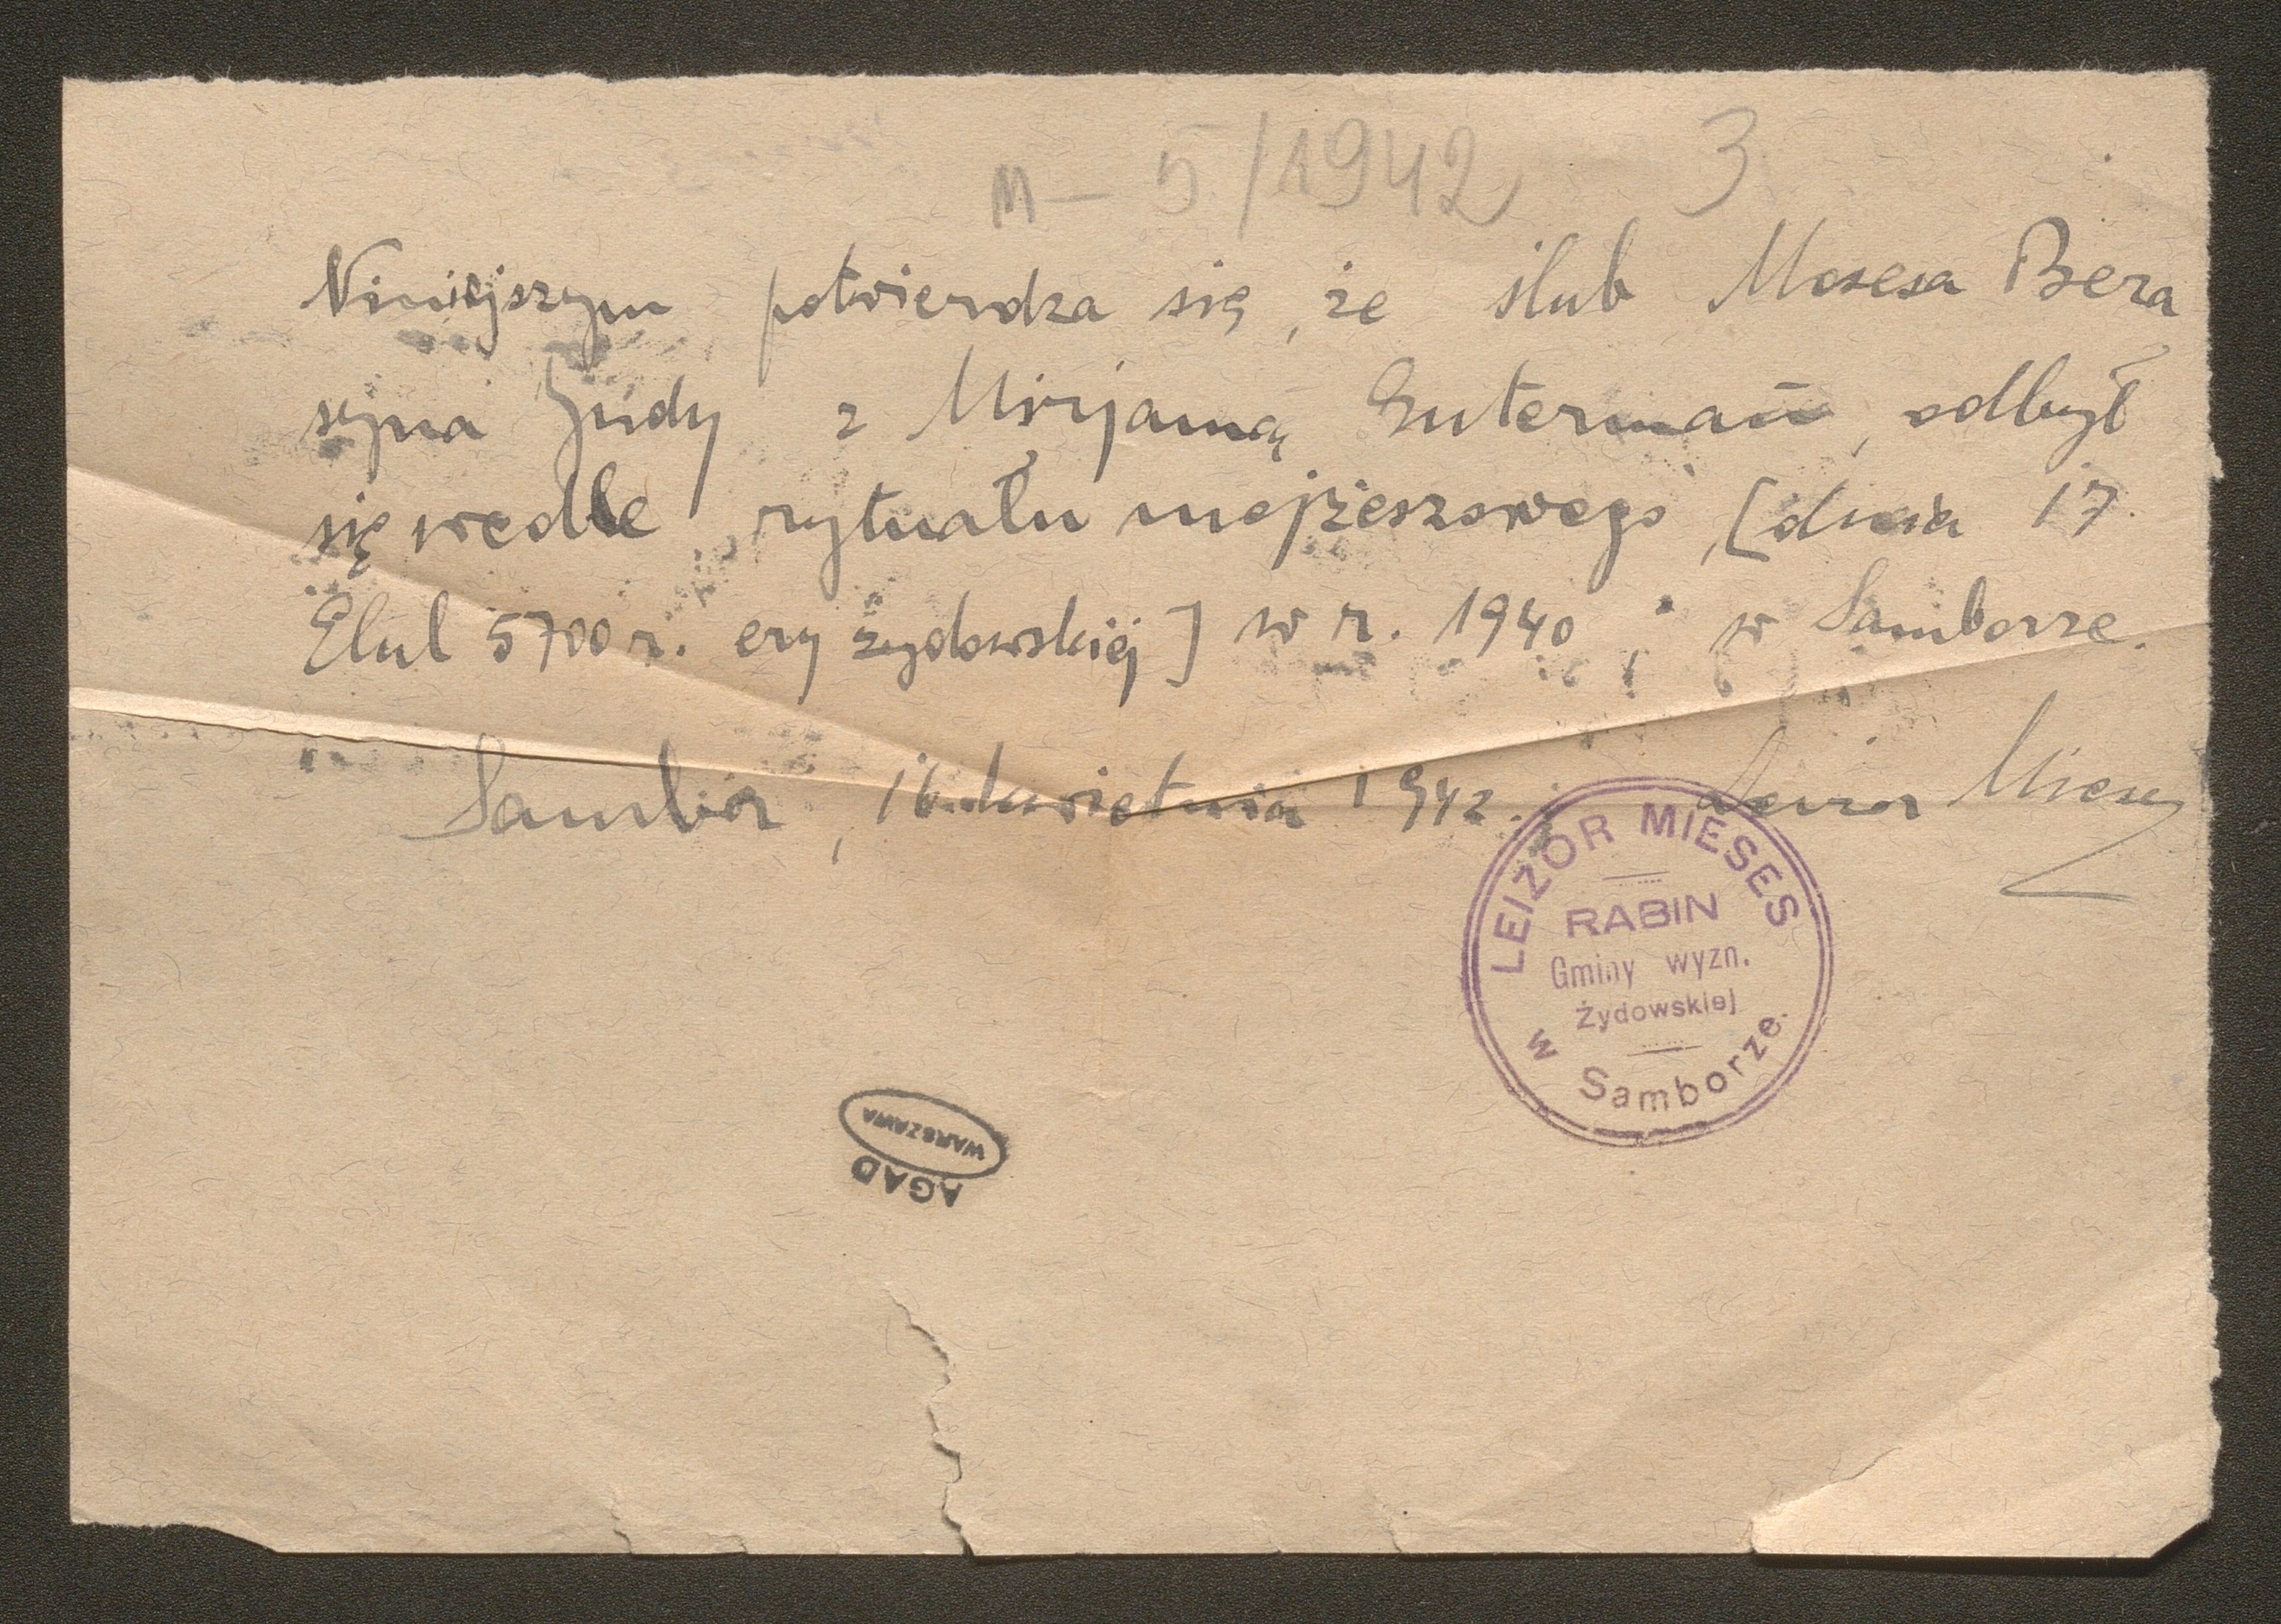 M - 5/1942 3
Niniejszym potwierdza się, że ślub Mosesa Bera
syna Judy z Mirjamą Guterman, odbył
się wedle rytuału mojżeszowego, [dnia 17.
Elul 5700 r. ery żydowskiej] w r. 1940; w Samborze.
Sambor, 16. kwietnia 1942. Leizor Mieses
LEIZOR MIESES
RABIN
Gminy wyzn.
Żydowskiej
w Samborze.
AGAD
WARSZAWA